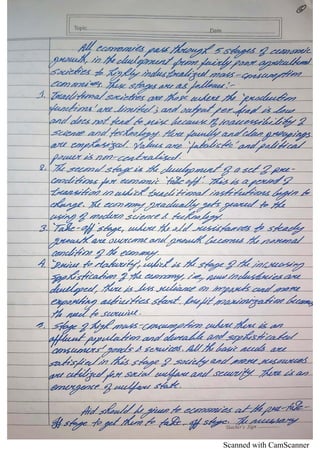 Topic
Date
All economies pass through 5 stages of economic
growth, in the development from fairly poor agricultural
societies to highly industrialized mass-consumption
economies. These stages are as follows:-
1. Traditional societies are those where the 'production
functions' are limited; and output per head is low
and does not tend to rise because of inaccessibility of
science and technology. Here family and clan groupings
are emphasized. Values are 'fatalistic' and political
power is non-centralized.
2. The second stage is the development of a set of pre-
conditions for economic 'take off'. This is a period of
transition in which traditional institutions begin to
change. The economy gradually gets geared to the
using of modern science & technology.
3. 'Take-off stage, where the old resistances to steady
growth are overcome and growth becomes the normal
condition of the economy.
4. 'Drive to Maturity', which is the stage of the increasing
sophistication of the economy, i.e, new industries are
developed, there is less reliance on imports and more
exporting activities start. Profit maximization becomes
the need to survive.
5. Stage of high mass-consumption where there is an
affluent population and durable and sophisticated
consumers' goods & services. All the basic needs are
satisfied in this stage of society and more resources
are utilized for social welfare and security. There is an
emergence of welfare state.
Aid should be given to economies at the pre-take-
off stage to get them to take-off stage. The necessary
Teacher's Sign
Scanned with CamScanner